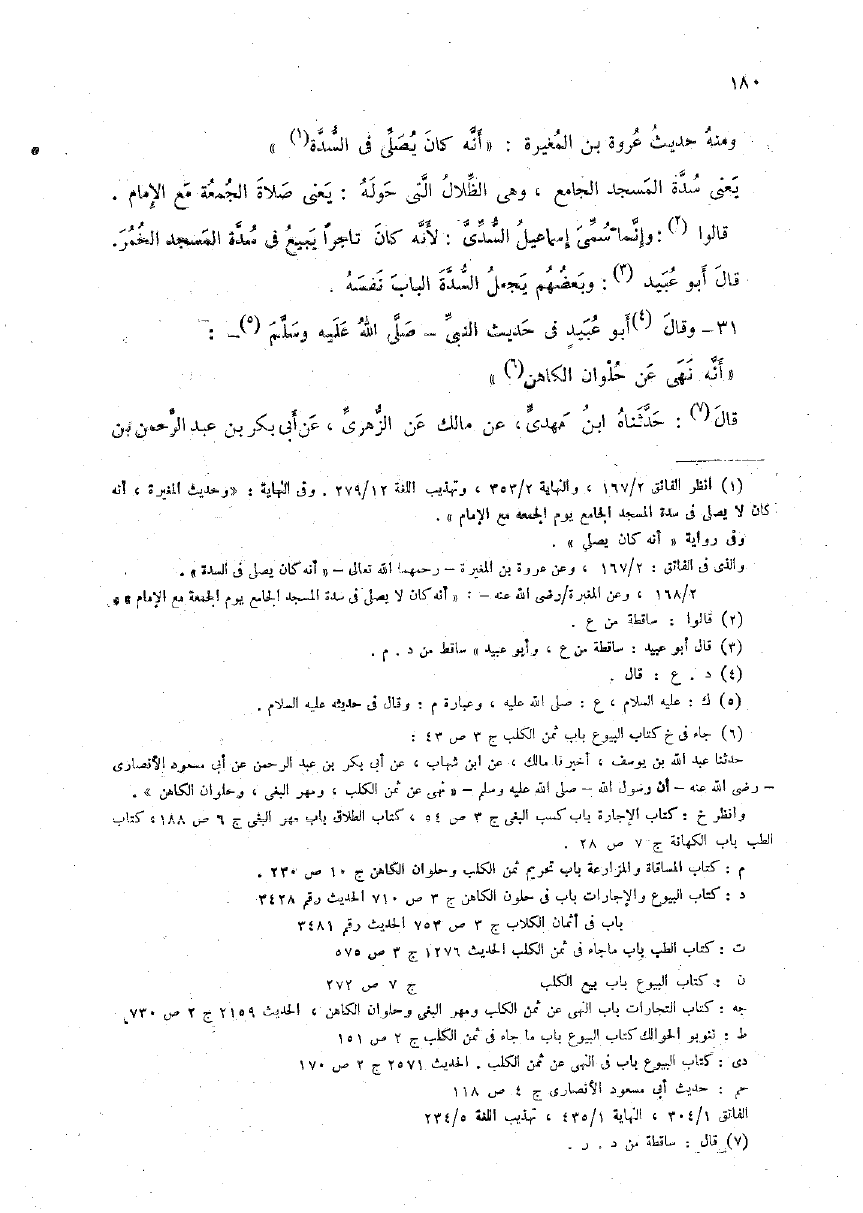 ١٨٠
ومنهُ حديثُ عُروة بن المُغيرة : «أَنَّه كانَ يُصَلِّى فى السُّدَّة(١) »
يَعْنى سُدَّة المَسجد الجامع ، وهى الظِّلالُ الَّتى حَولَهُ : يَعنى صَلاةَ الجُمعَة مَع الإمام .
قالوا (٢) : وإنَّما سُمِّىَ إسماعيلُ السُّدِّىَّ : لأَنَّه كانَ تاجراً يَبيعُ فى سُدَّة المَسجد الخُمُرَ.
قالَ أبو عُبَيد (٣) : وبَعضُهُم يَجعلُ السُّدَّةَ البابَ نَفسَهُ .
٣١ – وقالَ (٤) أبو عُبَيدٍ فى حَديث النبيِّ – صَلَّى اللهُ عَلَيه وسَلَّمَ (٥) – :
«أَنَّه نَهَى عَن حُلْوان الكاهن(٦) »
قالَ (٧) : حَدَّثَناهُ ابنُ مَهدىٍّ، عن مالك عَن الزُّهرىِّ ، عَن أبى بكر بن عبد الرَّحمن بن
(١) انظر الفائق ١٦٧/٢ ، والنهاية ٣٥٣/٢ ، وتهذيب اللغة ٢٧٩/١٢ . وفى النهاية : «وحديث المغيرة ، أنه
كان لا يصلى فى سدة المسجد الجامع يوم الجمعه مع الإمام » .
وفى رواية « أنه كان يصلي » .
والذى فى الفائق : ١٦٧/٢ ، وعن عروة بن المغيرة – رحمهما الله تعالى – « أنه كان يصلى فى السدة » .
١٦٨/٢ ، وعن المغيرة/رضى الله عنه – : « أنه كان لا يصلى فى سدة المسجد الجامع يوم الجمعة مع الإمام »
(٢) قالوا : ساقطة من ع .
(٣) قال أبو عبيد : ساقطة من ع ، وأبو عبيد» ساقط من د . م .
(٤) د . ع : قال .
(٥) ك : عليه السلام ، ع : صلى الله عليه ، وعبارة م : وقال فى حديثه عليه السلام .
(٦) جاء فى خ كتاب البيوع باب ثمن الكلب ج ٣ ص ٤٣ :
حدثنا عبد الله بن يوسف ، أخبرنا مالك ، عن ابن شهاب ، عن أبى بكر بن عبد الرحمن عن أبى مسعود الأنصارى
– رضى الله عنه – أن رسول الله – صلى الله عليه وسلم – « نهى عن ثمن الكلب ، ومهر البغى ، وحلوان الكاهن » .
وانظر خ : كتاب الإجارة باب كسب البغى ج ٣ ص ٥٤ ، كتاب الطلاق باب مهر البغى ج ٦ ص ١٨٨، كتاب
الطب باب الكهانة ج ٧ ص ٢٨ .
م : كتاب المساقاة والمزارعة باب تحريم ثمن الكلب وحلوان الكاهن ج ١٠ ص ٢٣٠ .
د : كتاب البيوع والإجارات باب فى حلون الكاهن ج ٣ ص ٧١٠ الحديث رقم ٣٤٢٨
باب فى أثمان الكلاب ج ٣ ص ٧٥٣ الحديث رقم ٣٤٨١
ت : كتاب الطب باب ماجاء فى ثمن الكلب الحديث ١٢٧٦ ج ٣ ص ٥٧٥
ن : كتاب البيوع باب بيع الكلب ج ٧ ص ٢٧٢
جه : كتاب التجارات باب النهى عن ثمن الكلب ومهر البغى وحلوان الكاهن ، الحديث ٢١٥٩ ج ٢ ص ٧٣٠.
ط : تنوير الحوالك كتاب البيوع باب ما جاء فى ثمن الكلب ج ٢ ص ١٥١
دى : كتاب البيوع باب فى النهى عن ثمن الكلب . الحديث ٢٥٧١ ج ٢ ص ١٧٠
حم : حديث أبى مسعود الأنصارى ج ٤ ص ١١٨
الفائق ٣٠٤/١ ، النهاية ٤٣٥/١ ، تهذيب اللغة ٢٣٤/٥
(٧) قال : ساقطة من د . ر .